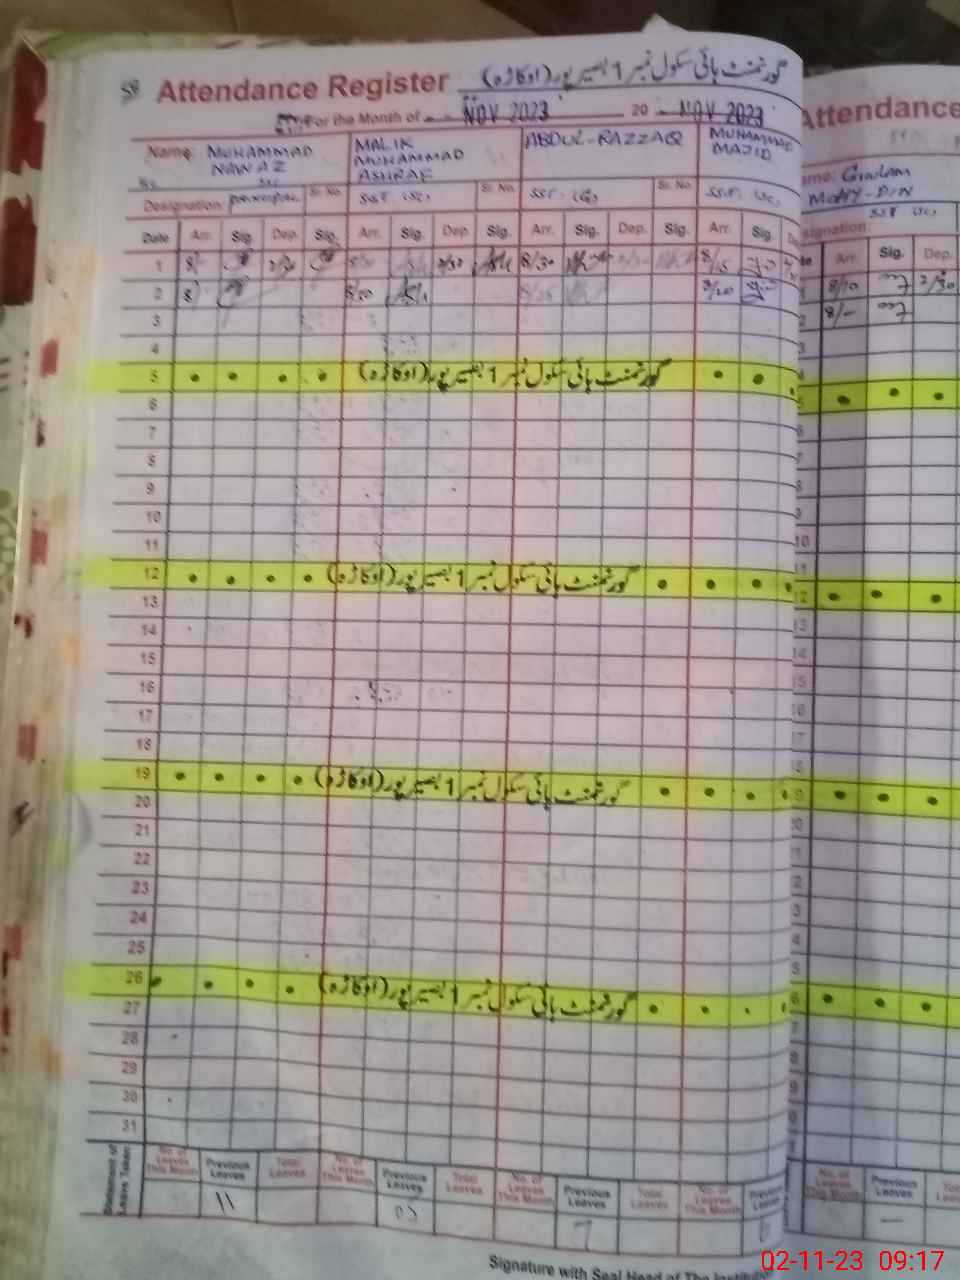 58 Attendance Register گورنمنٹ ہائی سکول نمبر 1 بصیر پور (اوکاڑہ)
For the Month of NOV 2023 20 NOV 2023
Name: MUHAMMAD NAWAZ
MALIK MUHAMMAD ASHRAF
ABDUL-RAZZAQ
MUHAMMAD MAJID
Designation: PRINCIPAL Sr. No. SST (SC) Sr. No. SST Sr. No. SST (SC)
Date Arr. Sig. Dep. Sig. Arr. Sig. Dep. Sig. Arr. Sig. Dep. Sig. Arr. Sig.
1 8/- 2/30 8/30 2/30 8/30 8/15
2 8 8/20
3
4
5 گورنمنٹ ہائی سکول نمبر 1 بصیر پور (اوکاڑہ)
6
7
8
9
10
11
12 گورنمنٹ ہائی سکول نمبر 1 بصیر پور (اوکاڑہ)
13
14
15
16
17
18
19 گورنمنٹ ہائی سکول نمبر 1 بصیر پور (اوکاڑہ)
20
21
22
23
24
25
26 گورنمنٹ ہائی سکول نمبر 1 بصیر پور (اوکاڑہ)
27
28
29
30
31
Statement of Leave Taken
No. of Leaves This Month Previous Leaves Total Leaves No. of Leaves This Month Previous Leaves Total Leaves No. of Leaves This Month Previous Leaves Total Leaves No. of Leaves This Month
11
Signature with Seal Head of The Institution
Attendance
Ghulam
MOHY-D-DIN
SST (SC)
Arr. Sig. Dep.
8/10 2/30
8/-
No. of Leaves This Month Previous Leaves
02-11-23 09:17